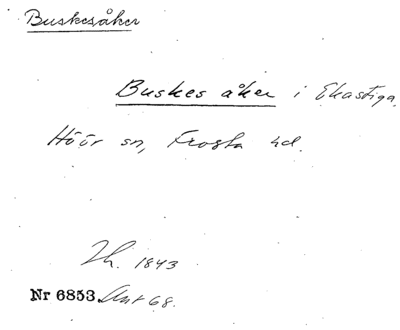 Buskesåker
Buskes åker i Ekastiga
Höör sn, Frosta hd.
Th. 1843
Nr 6853 Ant 68.